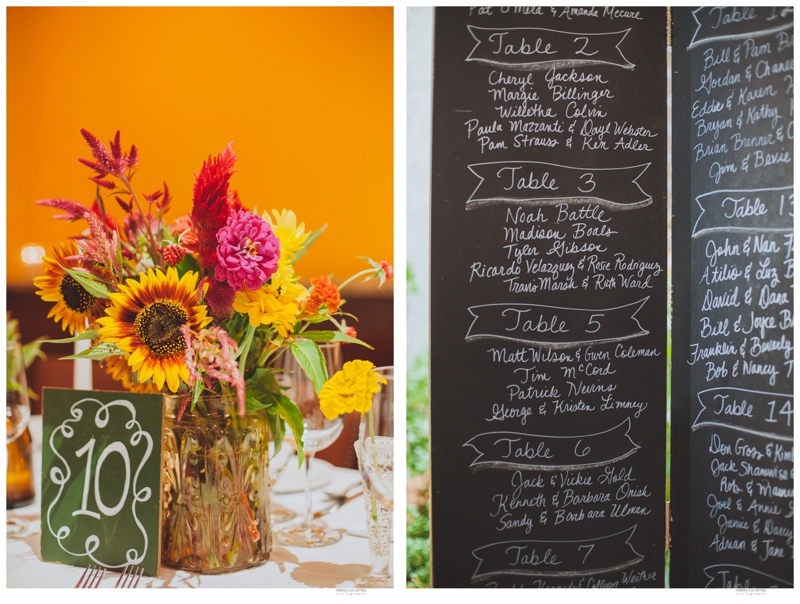 10
Pat O'Mera & Amanda Mecure
Table 2
Cheryl Jackson
Margie Billinger
Willetha Colvin
Paula Mazzanti & Dayl Webster
Pam Strauss & Ken Adler
Table 3
Noah Battle
Madison Boals
Tyler Gibson
Ricardo Velazquez & Rosie Rodriguez
Travis Marsh & Ruth Ward
Table 5
Matt Wilson & Gwen Coleman
Tim McCord
Patrick Nevins
George & Kristen Limney
Table 6
Jack & Vickie Gold
Kenneth & Barbara Oriah
Sandy & Barbara Ulman
Table 7
& Colleen Weither
Table 12
Bill & Pam B
Gordan &
Eddie & Karen
Bryan & Kathy
Brian Brenner & C
Jim & Bevie
Table 13
John & Nan
Atilio & Luz B
David & Dana
Bill & Joyce B
Franklin & Beverly
Bob & Nancy
Table 14
Don Gross & Kim
Jack
Rob &
Joel & Annie
Janice & Darcy
Adrian & Jane
Table
rebecca ames
photography
rebecca ames
photography